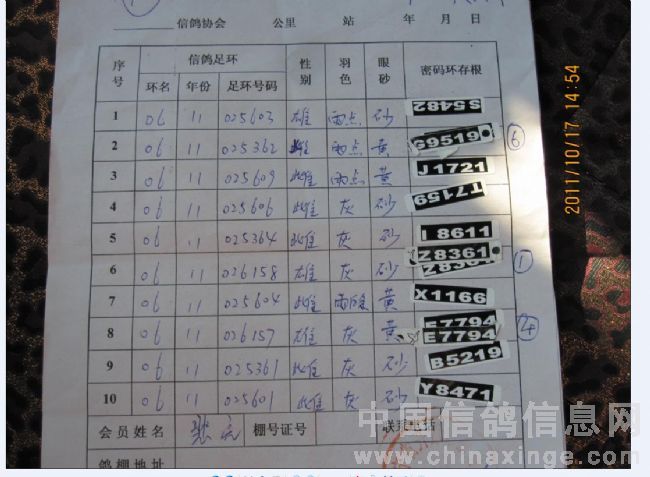 信鸽协会 公里 站 年 月 日
序号 信鸽足环 性别 羽色 眼砂 密码环存根
环名 年份 足环号码
1 06 11 025603 雄 雨点 砂 S5482
2 06 11 025362 雌 雨点 黄 G9519 ⑥
3 06 11 025609 雌 雨点 黄 J1721
4 06 11 025606 雌 灰 砂 T7459
5 06 11 025364 雌 灰 砂 I 8611
6 06 11 026158 雄 灰 砂 Z8361 Z8361 ①
7 06 11 025604 雌 黄 X1166
8 06 11 026157 雄 灰 黄 E7794 E7794
9 06 11 025361 雌 灰 砂 B5219
10 06 11 025601 雌 灰 砂 Y8471
会员姓名 棚号证号 联系电话
鸽棚地址
2011/10/17 14:54
中国信鸽信息网
www.chinaxinge.com